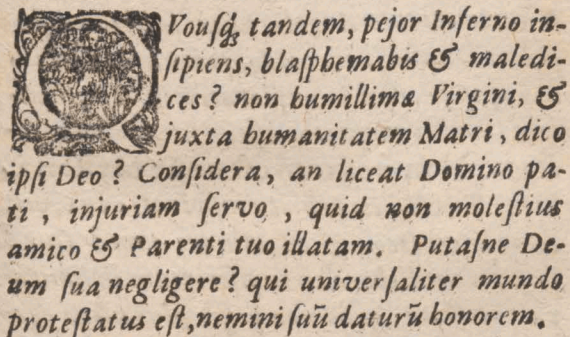 QVouſqꝫ tandem, pejor Inferno in-
ſipiens, blaſphemabis & maledi-
ces? non humillimæ Virgini, &
juxta humanitatem Matri, dico
ipſi Deo? Conſidera, an liceat Domino pa-
ti, injuriam ſervo, quid non moleſtius
amico & Parenti tuo illatam. Putaſne De-
um ſua negligere? qui univerſaliter mundo
proteſtatus eſt, nemini ſuū daturū honorem.